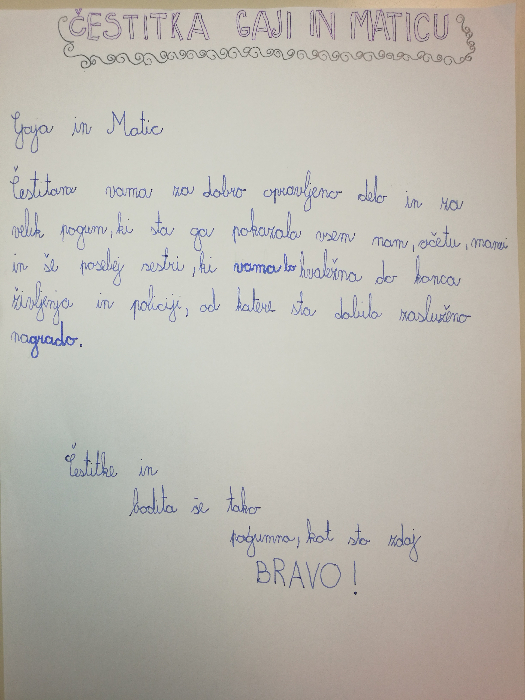 ČESTITKA GAJI IN MATICU
Gaja in Matic
Čestitam vama za dobro opravljeno delo in za
velik pogum, ki sta ga pokazala vsem nam, očetu, mami
in še posebej sestri, ki vama bo hvaležna do konca
življenja in policiji, od katere sta dobila zasluženo
nagrado.
Čestitke in
bodita še tako
pogumna, kot sta zdaj
BRAVO!